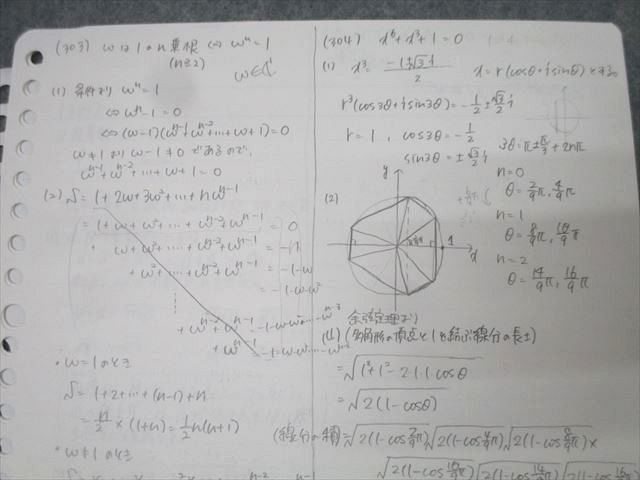 (303) ωは1のn乗根 ⇔ ωⁿ=1
(n≧2)
ω∈ℂ
(1) 条件より ωⁿ=1
⇔ ωⁿ-1=0
⇔(ω-1)(ωⁿ⁻¹+ωⁿ⁻²+…+ω+1)=0
ω≠1よりω-1≠0であるので、
ωⁿ⁻¹+ωⁿ⁻²+…+ω+1=0
(2) S=1+2ω+3ω²+…+nωⁿ⁻¹
=1+ω+ω²+…+ωⁿ⁻²+ωⁿ⁻¹ =0
+ ω+ω²+…+ωⁿ⁻²+ωⁿ⁻¹ =-1
+ω²+…+ωⁿ⁻²+ωⁿ⁻¹ =-1-ω
=-1-ω-ω²
+ωⁿ⁻²+ωⁿ⁻¹ =-1-ω-ω²-…-ωⁿ⁻³
+ωⁿ⁻¹ =-1-ω-ω²-…-ωⁿ⁻²
・ω=1のとき
S=1+2+…+(n-1)+n
=n/2×(1+n)=1/2n(n+1)
・ω≠1のとき
(304) x⁶+x³+1=0
(1) x³=(-1±√3i)/2
x=r(cosθ+isinθ)とする
r³(cos3θ+isin3θ)=-1/2±√3/2i
r=1, cos3θ=-1/2
sin3θ=±√3/2i
3θ=π±π/3+2nπ
n=0
θ=2/9π, 4/9π
n=1
θ=8/9π, 10/9π
n=2
θ=14/9π, 16/9π
(2)
y
1
x
余弦定理より
(多角形の頂点と1を結ぶ線分の長さ)
=√(1²+1²-2・1・1cosθ)
=√(2(1-cosθ))
(線分の積)=√(2(1-cos2/9π))√(2(1-cos4/9π))√(2(1-cos8/9π))×
√(2(1-cos10/9π))√(2(1-cos14/9π))√(2(1-cos16/9π))